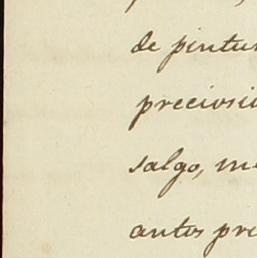 de pintur
preciosi
salgo, m
antos pre